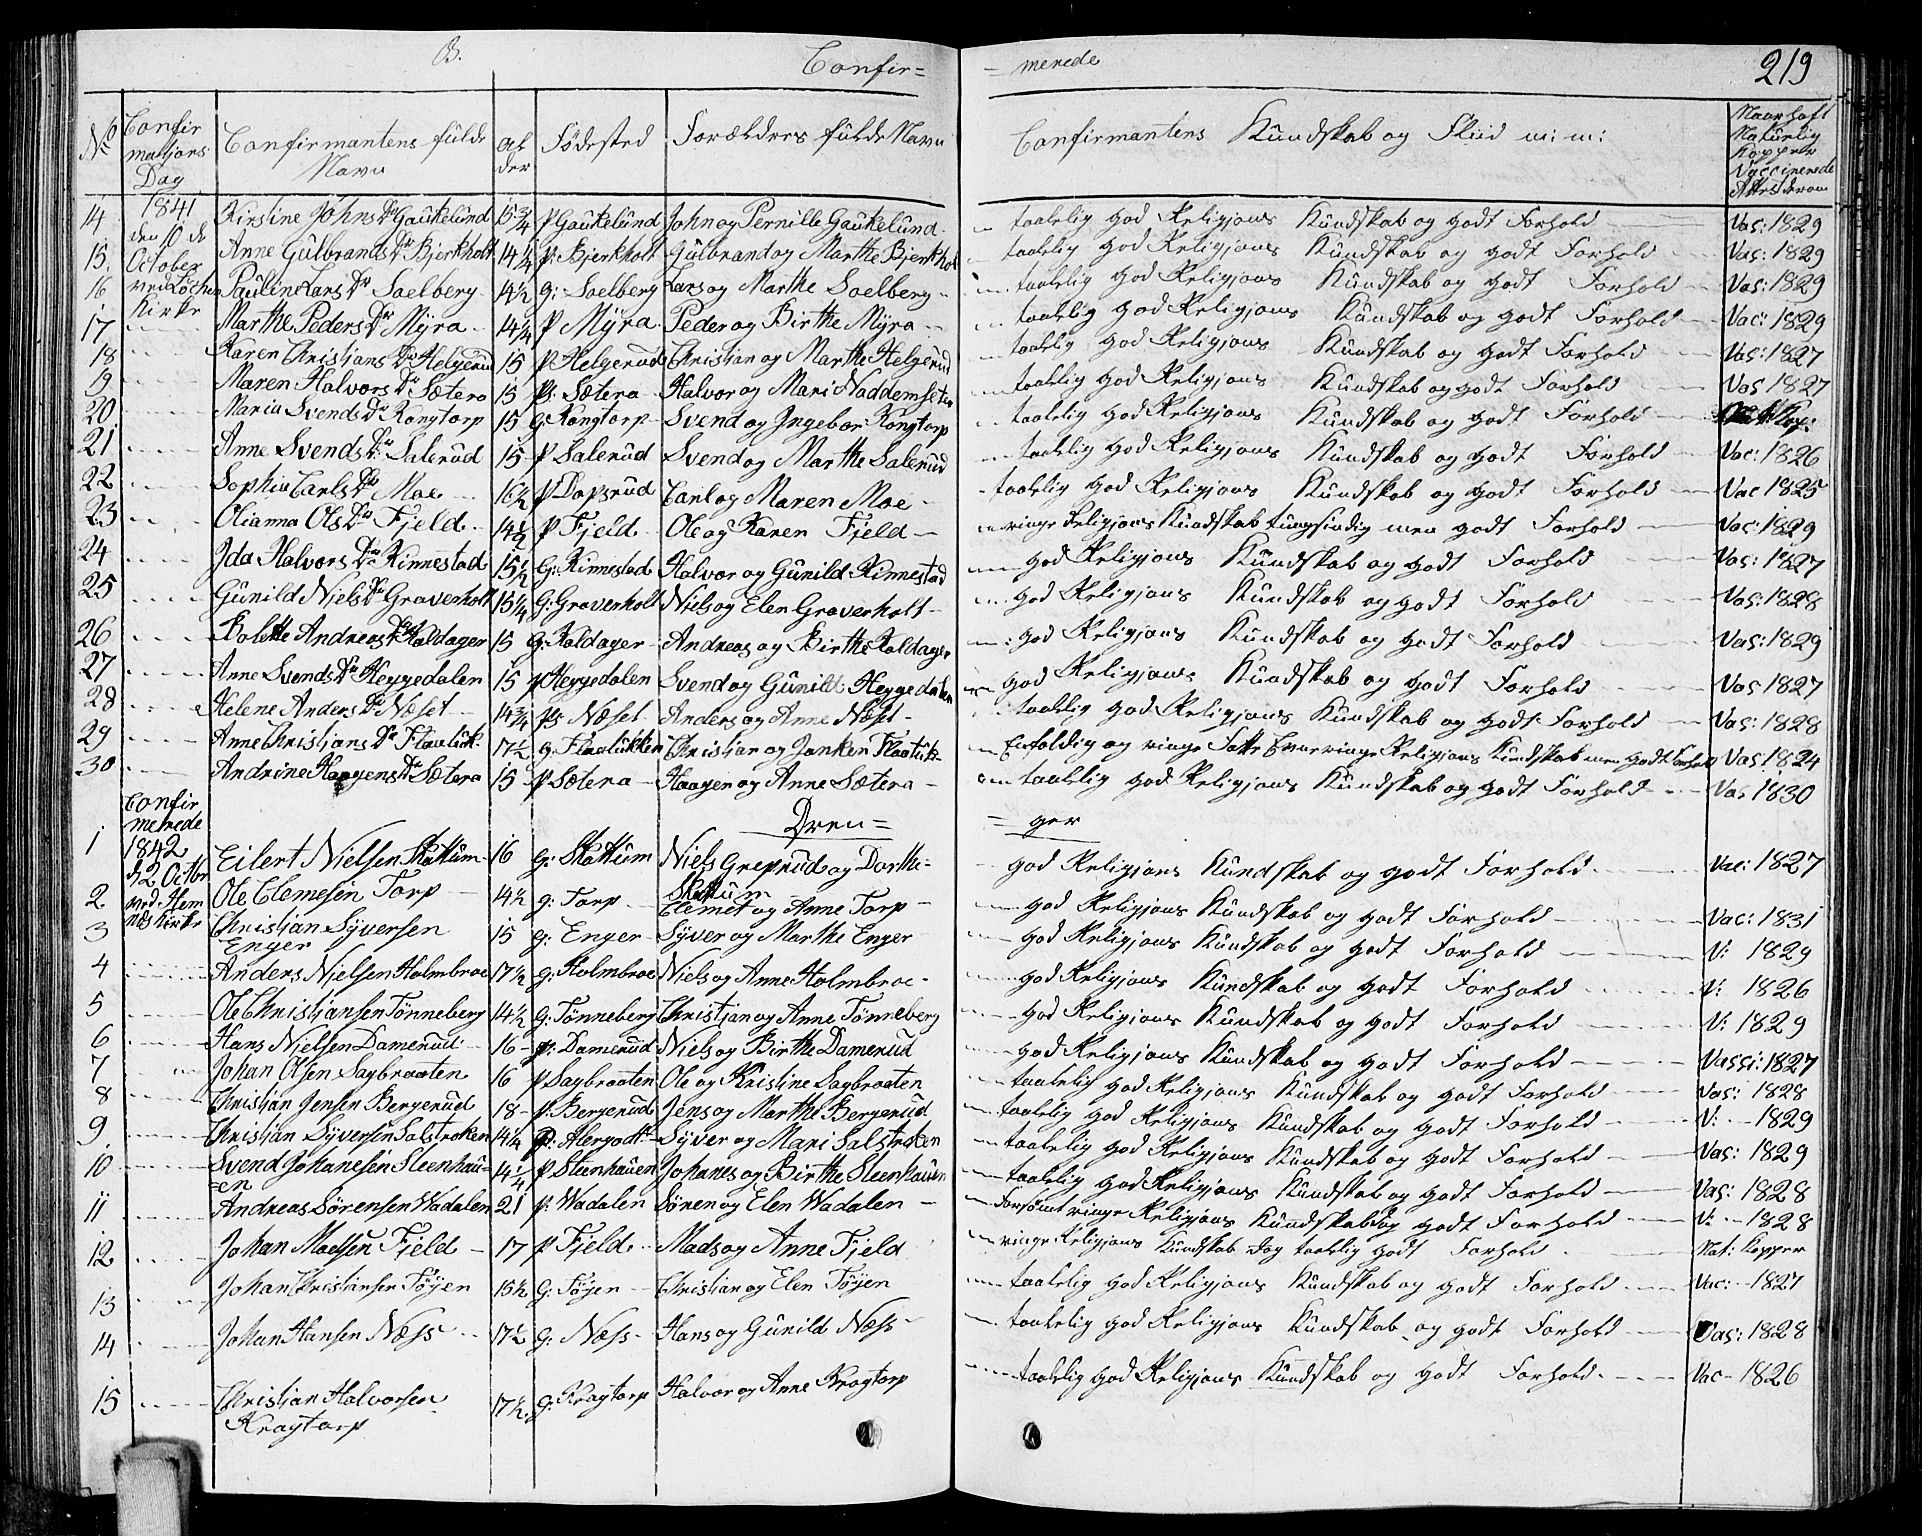 B. Confir= =merede 219
No Confirmatjons Dag Confirmantens fulde Navn Alder Fødested Forældres fulde Navn Confirmantens Kundskab og Fliid m: m: Naar haft Naturlig Kopper Vaccinerede
14 1841 Kirstine Johns Dr Gaukelund 15 3/4 P Gaukelund John og Pernille Gaukelund taalelig god Religjons Kundskab og godt Forhold Vac: 1829
15. den 10 de Anne Gulbrands Dr Bjerkholt 14 1/4 P: Bjerkholt Gulbrand og Marthe Bjerkholt taalelig god Religjons Kundskab og godt Forhold Vac: 1829
16 October Pauline Lars Dr Soelberg 14 1/2 G: Soelberg Lars og Marthe Soelberg taalelig god Religjons Kundskab og godt Forhold Vac: 1829
17 Kirke Marthe Peders Dr Myra 14 1/4 P Myra Peder og Birthe Myra taalelig god Religjons Kundskab og godt Forhold Vac: 1829
18 Karen Christjans Dr Helgerud 15 P Helgerud Christjan og Marthe Helgerud taalelig god Religjons Kundskab og godt Forhold Vac: 1827
19 Maren Halvors Dr Sætera 15 Ps. Sætera Halvor og Mari Naddemsetra taalelig god Religjons Kundskab og godt Forhold Vac 1827
20 Maria Svends Dr Kongtorp 15 G Kongtorp Svend og Ingebor Kongtorp taalelig god Religjons Kundskab og godt Forhold
21 Anne Svends Dr Salerud 15 P Salerud Svend og Marthe Salerud taalelig god Religjons Kundskab og godt Forhold Vac: 1826
22 Sophia Carls Dr Moe 16 1/2 P Dapsrud Carl og Maren Moe taalelig god Religjons Kundskab og godt Forhold Vac 1825
23 Olianna Ols Dr Fjeld 14 1/2 P Fjeld Ole og Karen Fjeld ringe Religjons Kundskab tungsindig men godt Forhold Vac: 1829
24 Ida Halvors Dr Kinnestad 15 1/2 G: Kinnestad Halvor og Gunild Kinnestad god Religjons Kundskab og godt Forhold Vac: 1827
25 Gunild Niels Dr Graverholt 15 1/4 G: Graverholt Niels og Elen Graverholt god Religjons Kundskab og godt Forhold Vac: 1828
26 Bolette Andreas Dr Koldager 15 G: Koldager Andreas og Birthe Koldager god Religjons Kundskab og godt Forhold Vac: 1829
27 Anne Svends Dr Heggedalen 15 P Heggedalen Svend og Gunild Heggedalen god Religjons Kundskab og godt Forhold Vac 1827
28 Helene Anders Dr Næset 14 3/4 Ps Næset Anders og Anne Næset taalelig god Religjons Kundskab og godt Forhold Vac: 1828
29 Anne Christjans Dr Flaaluk 17 1/2 G. Flaalukken Christjan og Janken Flaaluk Enfoldig og ringe Fatte Evne ringe Religjons Kundskab men godt Forhold Vac 1824
30 Andrine Haagens Dr Sætera 15 P Sætera Haagen og Anne Sætera taalelig god Religjons Kundskab og godt Forhold Vac 1830
Confirmerede Dren= =ger
1 1842 Eilert Nielsen Skattum 16 G: Skattum Niels Greprud og Dorthe Skattum god Religjons Kundskab og godt Forhold Vac: 1827
2 Ole Clemesen Torp 14 1/2 G: Torp Clemet og Anne Torp god Religjons Kundskab og godt Forhold Vac: 1831
3 Christjan Syversen Enger 15 G: Enger Syver og Marthe Enger god Religjons Kundskab og godt Forhold V: 1829
4 Anders Nielsen Holmbroe 17 1/2 G: Holmbroe Niels og Anne Holmbroe god Religjons Kundskab og godt Forhold V: 1826
5 Ole Christjansen Tønneberg 14 1/2 G: Tønneberg Christjan og Anne Tønneberg god Religjons Kundskab og godt Forhold V: 1829
6 Hans Nielsen Damerud 16 P: Damerud Niels og Birthe Damerud god Religjons Kundskab og godt Forhold Vacci: 1827
7 Johan Olsen Sagbraaten 16 P Sagbraaten Ole og Kristine Sagbraaten taalelig god Religjons Kundskab og godt Forhold Vac: 1828
8 Christjan Jensen Bergerud 18 P. Bergerud Jens og Marthe Bergerud taalelig god Religjons Kundskab og godt Forhold V: 1829
9. Christjan Syversen Salstroken 14 1/4 Syver og Mari Salstroken taalelig god Religjons Kundskab og godt Forhold Vac: 1829
10 Svend Johanesen Steenhau=en 14 1/4 P Steenhauen Johanes og Birthe Steenhauen taalelig god Religjons Kundskab og godt Forhold Vac: 1828
11 Andreas Sørensen Wadalen 21 P: Wadalen Søren og Elen Wadalen Forsømt ringe Religjons Kundskab og godt Forhold V: 1828
12 Johan Madsen Fjeld 17 P Fjeld Mads og Anne Fjeld ringe Religjons Kundskab dog taalelig godt Forhold Nat: Kopper
13 Johan Christjansen Tøyen 15 1/2 G: Tøjen Christian og Elen Tøyen taalelig god Religjons Kundskab og godt Forhold Vac: 1827
14 Johan Hansen Næss 17 1/2 G: Næss Hans og Gunild Næss taalelig god Religjons Kundskab og godt Forhold Vac: 1828
15 Christjan Halvorsen Kragtorp 17 1/2 G: Kragtorp Halvor og Anne Kragtorp taalelig god Religjons Kundskab og godt Forhold Vac 1826